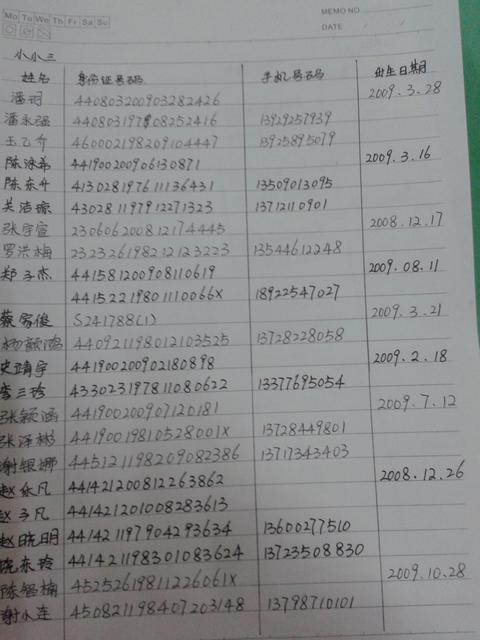 Mo Tu We Th Fr Sa Su
MEMO NO.
DATE / /
小小三
姓名 身份证号码 手机号码 出生日期
潘玥 440803200903282426 2009.3.28
潘永强 440803197908252416 13929257939
王乙介 460002198209104447 13925895079
陈泳希 441900200906130871 2009.3.16
陈东升 413028197611136431 13509013095
关洁琼 430281197912271323 13712110901
张宇宣 230606200812174445 2008.12.17
罗洪梅 232326198212123223 13544612248
郑子杰 441581200908110619 2009.08.11
44152219801110066X 18922547027
蔡 俊 S241788(1) 2009.3.21
杨 鸿 440921198012103525 13728228058
史靖宇 441900200902180898 2009.2.18
李三玲 433023197811080622 13377695054
张颖涵 441900200907120181 2009.7.12
张泽彬 44190019810528001X 13728449801
谢银娜 445121198209082386 13717343403
赵乐凡 441421200812263862 2008.12.26
赵子凡 441421201008283613
赵晓明 441421197904293634 13600277510
饶东玲 441421198301083624 13723508830
陈 楠 45252619811226061X 2009.10.28
谢小连 450821198407203148 13798710101